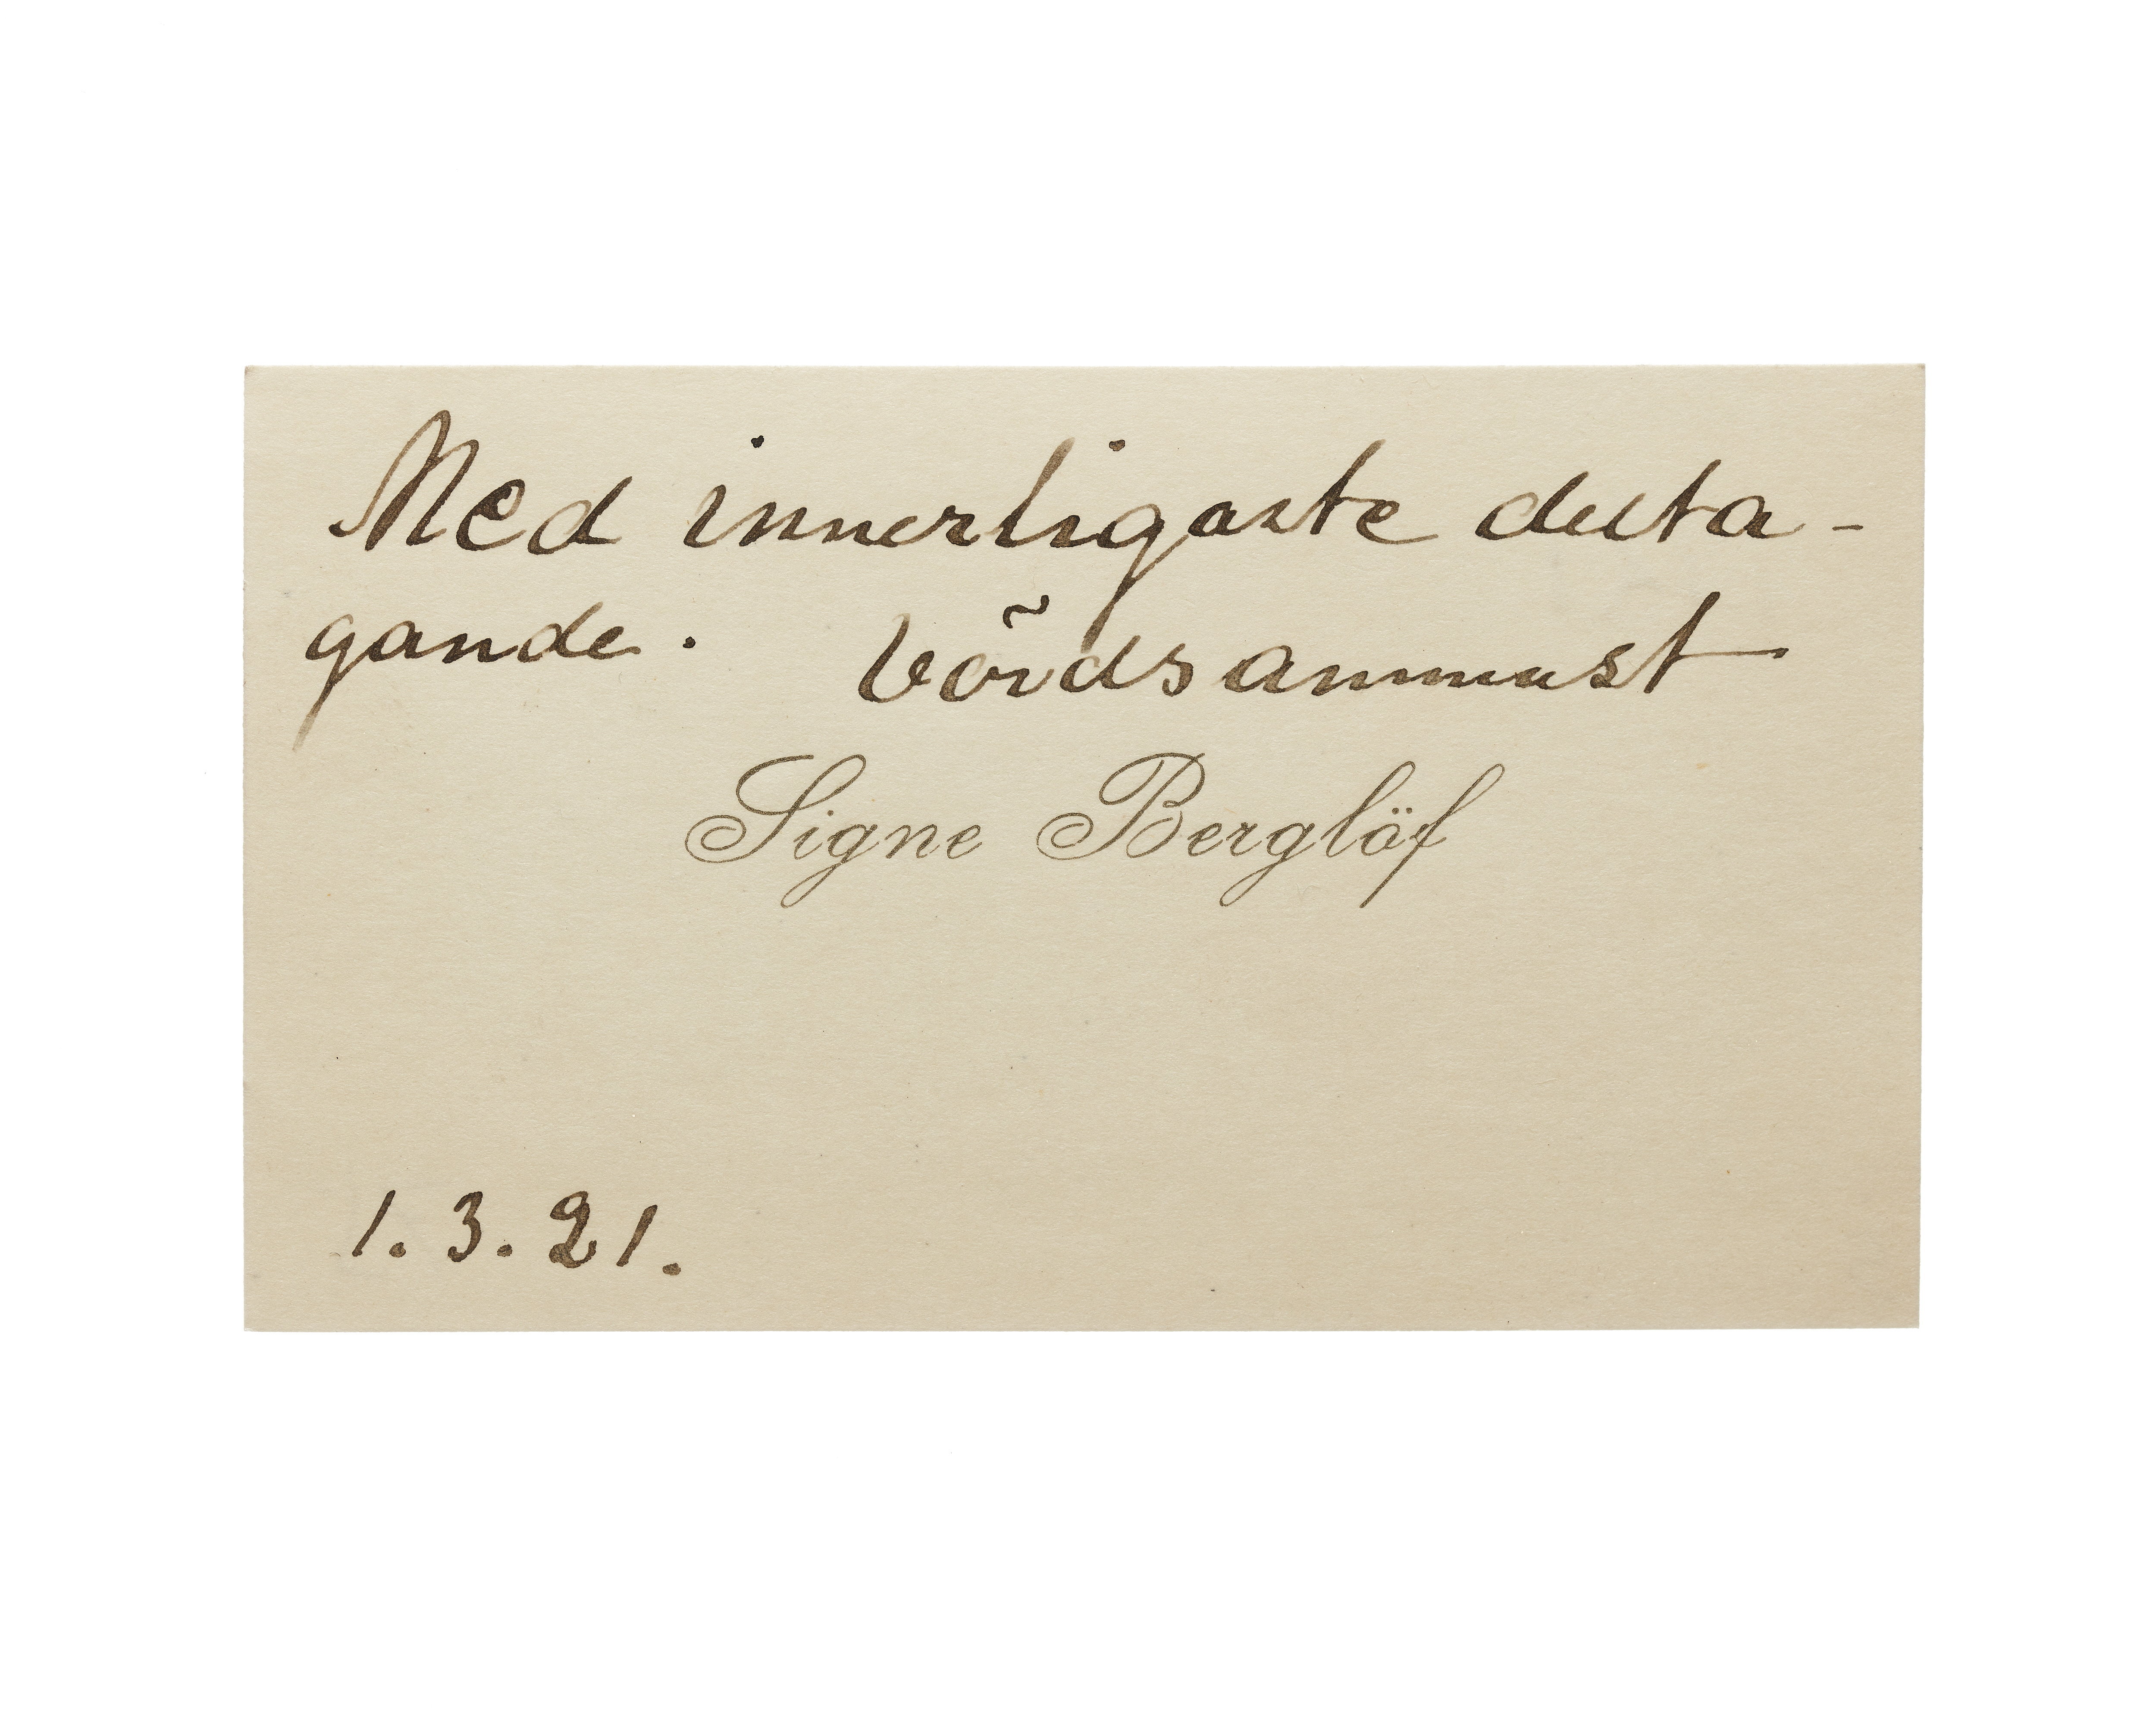 Med innerligaste delta-
gande. Vördsammast
Signe Berglöf
1.3.21.